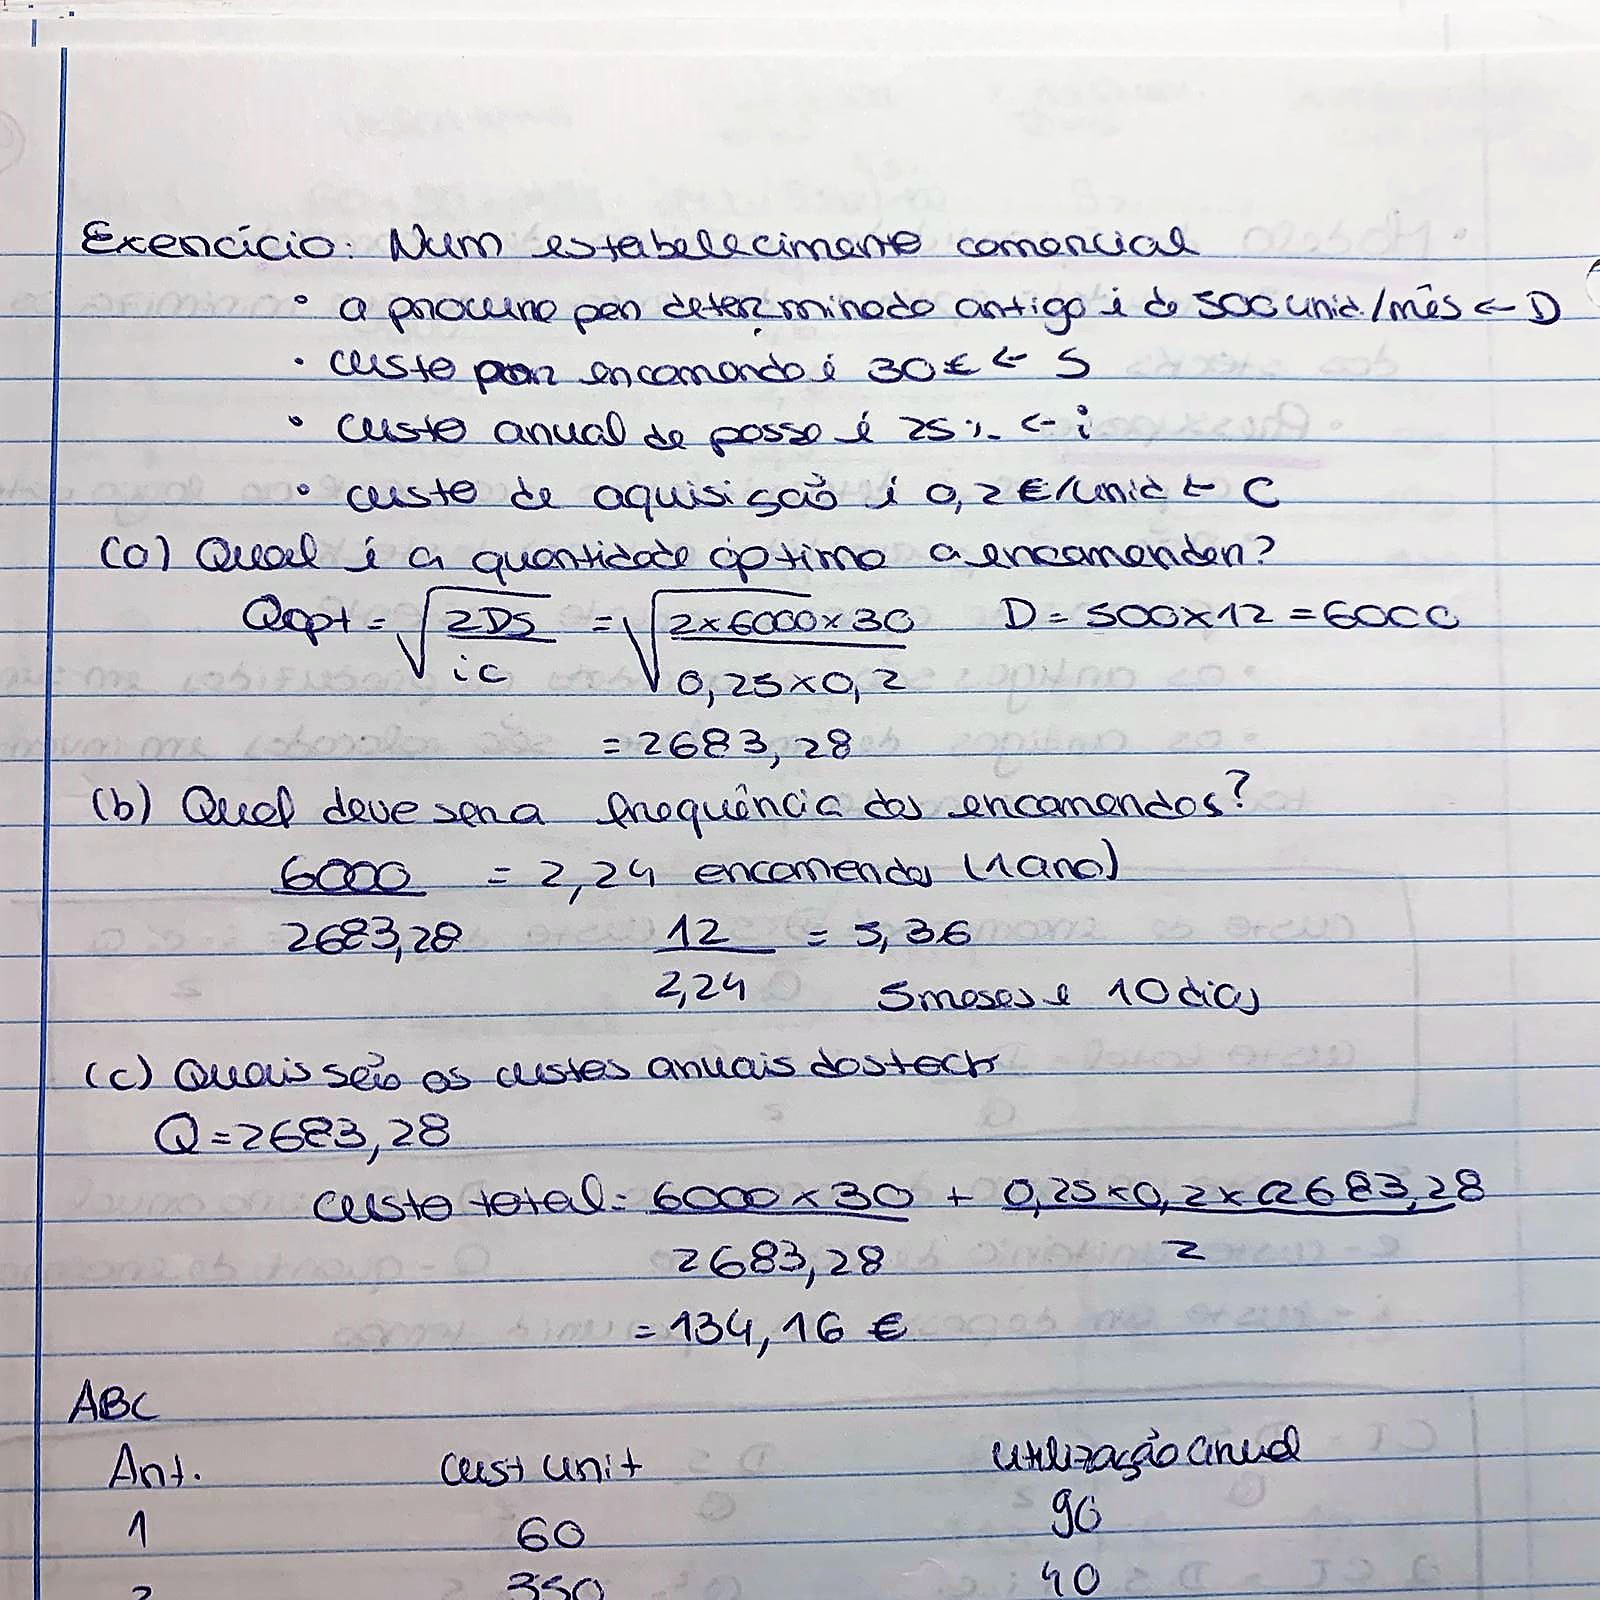 Exercício: Num estabelecimento comercial
• a procura por determinado artigo é de 500 unid./mês ← D
• custo por encomenda é 30€ ← S
• custo anual de posse é 25% ← i
• custo de aquisição é 0,2€/unid ← C
(a) Qual é a quantidade óptima a encomendar?
Qopt = √(2DS / ic) = √(2×6000×30 / 0,25×0,2) D = 500×12 = 6000
= 2683,28
(b) Qual deve ser a frequência das encomendas?
6000 / 2683,28 = 2,24 encomendas (1 ano)
12 / 2,24 = 5,36
5 meses e 10 dias
(c) Quais são os custos anuais do stock
Q = 2683,28
custo total = 6000 × 30 / 2683,28 + 0,25×0,2×2683,28 / 2
= 134,16 €
ABC
Art. cust unit utilização anual
1 60 90
2 350 40